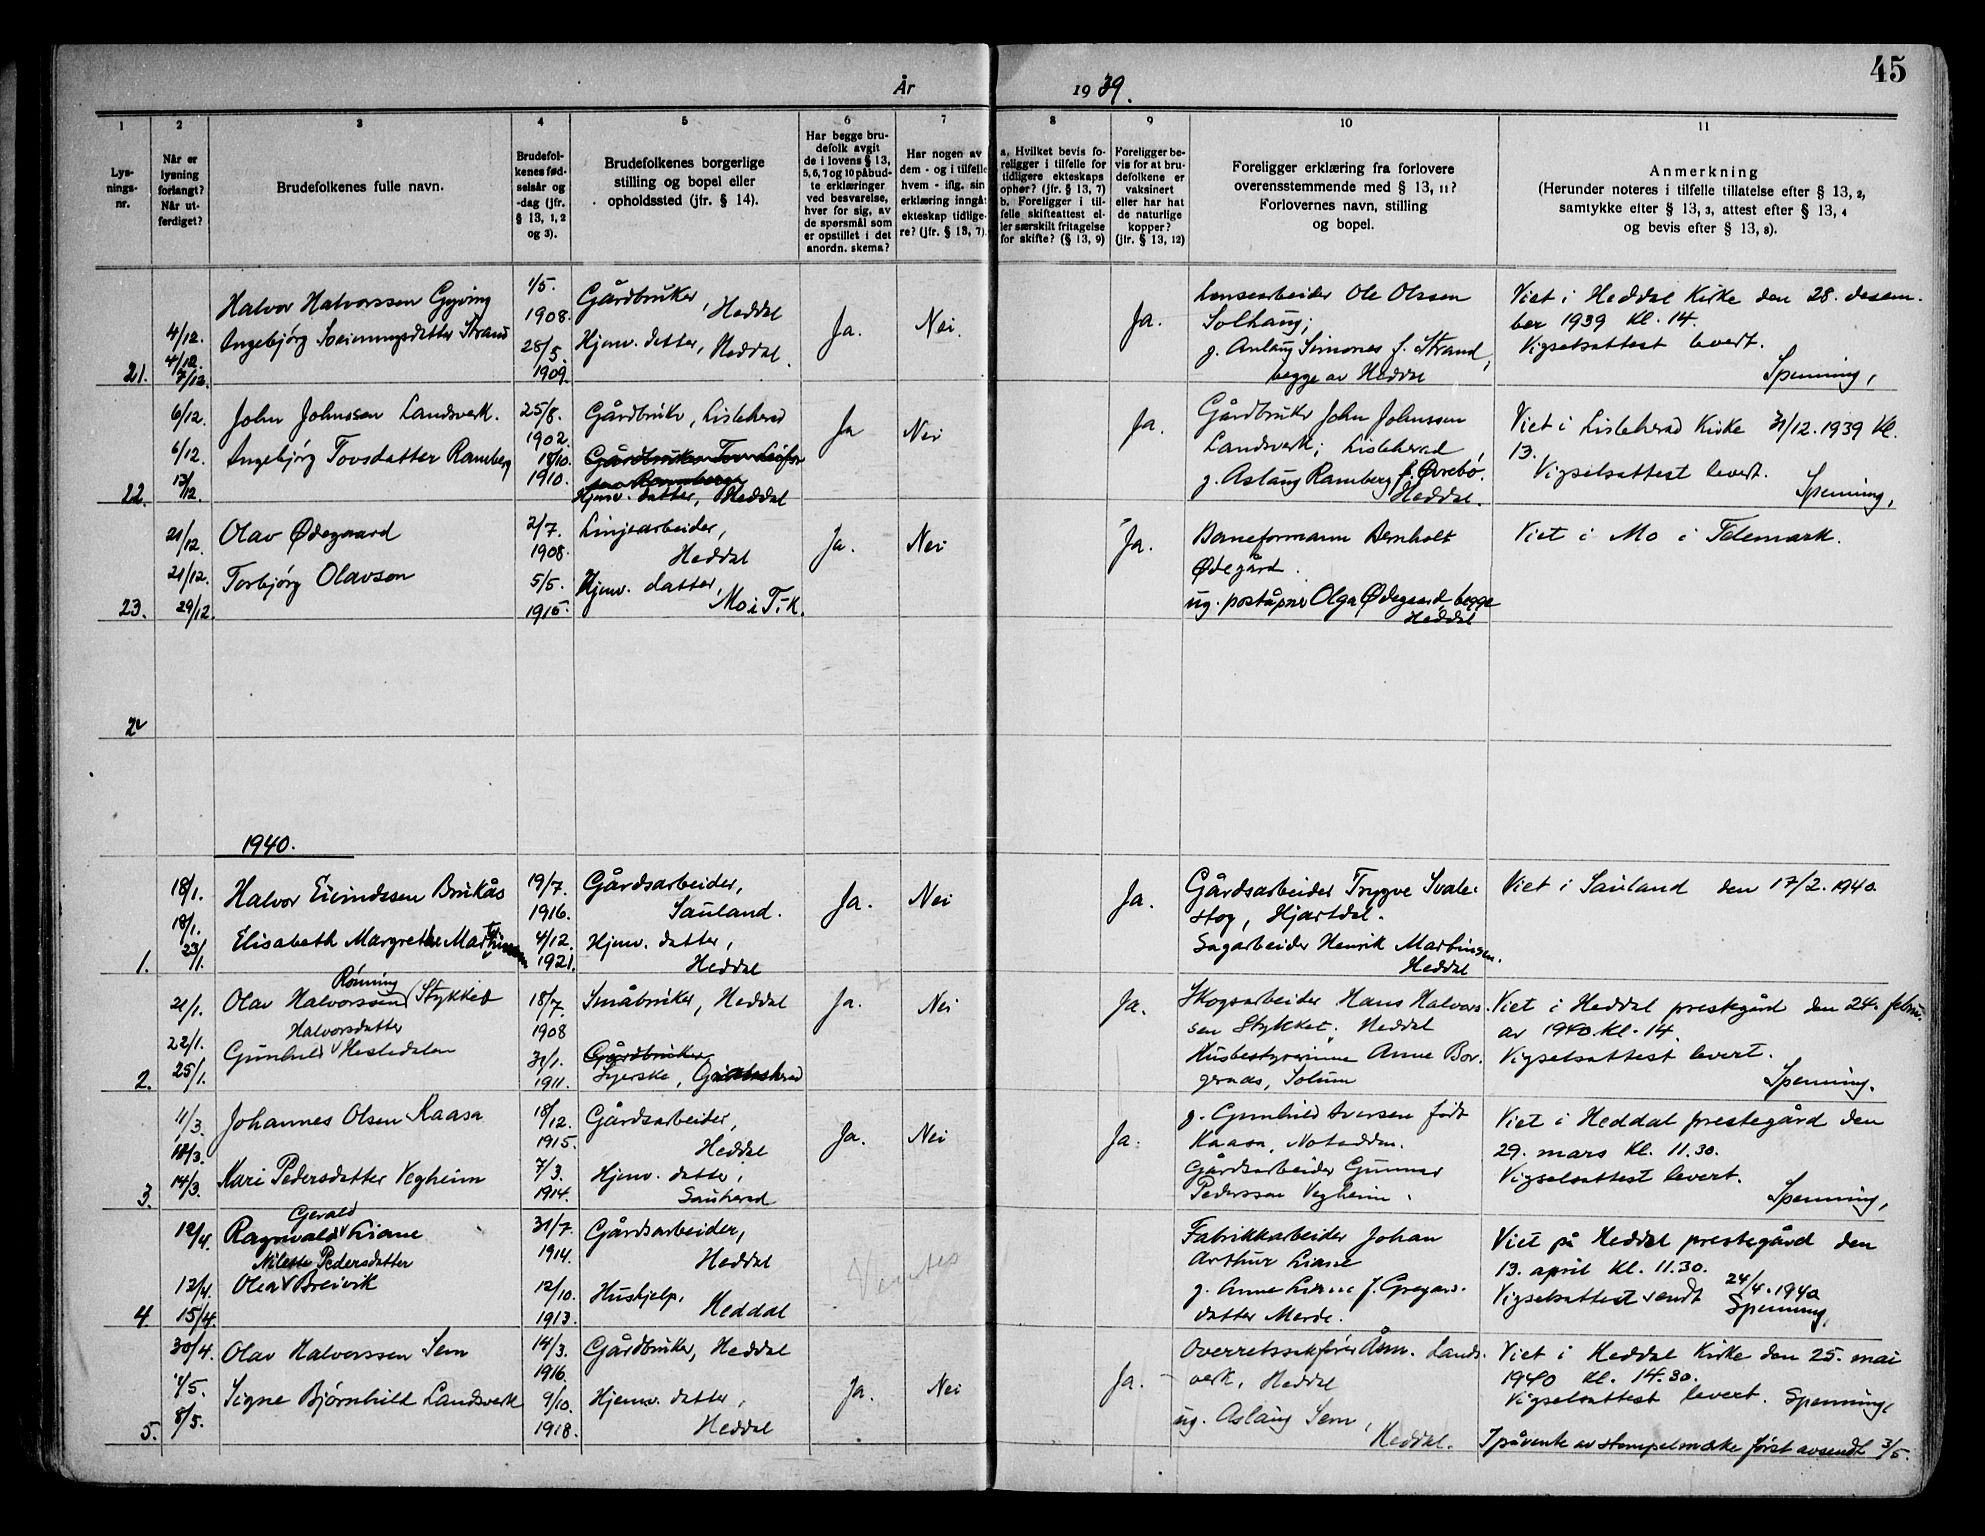 45
År 1939.
1 2 3 4 5 6 7 8 9 10 11
Lys-
nings-
nr.
Når er
lysning
forlangt?
Når ut-
ferdiget?
Brudefolkenes fulle navn.
Brudefol-
kenes fød-
selsår og
-dag (jfr.
§ 13, 1, 2
og 3).
Brudefolkenes borgerlige
stilling og bopel eller
opholdssted (jfr. § 14).
Har begge bru-
defolk avgit
de i lovens § 13,
5, 6, 7 og 10 påbud-
te erklæringer
ved besvarelse,
hver for sig, av
de spørsmål som
er opstillet i det
anordn. skema?
Har nogen av
dem - og i tilfelle
hvem - iflg. sin
erklæring inngåt
ekteskap tidlige-
re? (jfr. § 13, 7).
a. Hvilket bevis fo-
religger i tilfelle for
tidligere ekteskaps
ophør? (jfr. § 13, 7)
b. Foreligger i til-
felle skifteattest el-
ler særskilt fritagelse
for skifte? (§ 13, 9)
Foreligger be-
vis for at bru-
defolkene er
vaksinert
eller har hat
de naturlige
kopper?
(jfr. § 13, 12)
Foreligger erklæring fra forlovere
overensstemmende med § 13, 11?
Forlovernes navn, stilling
og bopel.
Anmerkning
(Herunder noteres i tilfelle tillatelse efter § 13, 2,
samtykke efter § 13, 3, attest efter § 13, 4
og bevis efter § 13, 8).
21.
4/12.
4/12.
7/12.
Halvor Halvorssen Gyving
Ingebjørg Sveinungsdatter Strand
1/5.
1908.
28/5.
1909.
Gårdbruker, Heddal
Hjemv. datter, Heddal.
Ja.
Nei.
Ja.
Lensearbeider Ole Olssen
Solhaug;
g. Aslaug Simones f. Strand,
begge av Heddal
Viet i Heddal Kirke den 28. desem-
ber 1939 kl. 14.
Vigselsattest levert.
Spenning,
22.
6/12.
6/12.
12/12.
John Johnssen Landsverk.
Ingebjørg Tovsdatter Ramberg
25/8.
1902.
18/10.
1910.
Gårdbruker, Lisleherad
Gårdbruker Tov Leifs-
Hjemv. datter, Heddal
Ja
Nei
Ja.
Gårdbruker John Johnssen
Landsverk; Lisleherad
g. Aslaug Ramberg f. Øvrebø.
Heddal.
Viet i Lisleherad Kirke 31/12.1939 kl.
13.
Vigselsattest levert.
Spenning,
23.
21/12.
21/12.
29/12.
Olav Ødegaard
Torbjørg Olavson
2/7.
1908.
5/5.
1915.
Linjearbeider,
Heddal
Hjemv. datter,
Mo i T-k.
Ja.
Nei
Ja.
Baneformann Bernholt
Ødegård.
ug. poståpner Olga Ødegaard, begge
Heddal
Viet i Mo i Telemark.
1940.
1.
18/1.
18/1.
23/1.
Halvor Eivindssen Brukås
Elisabeth Margrethe Martinsen
19/7.
1916.
4/12.
1921.
Gårdsarbeider,
Sauland.
Hjemv. datter,
Heddal
Ja.
Nei
Ja.
Gårdsarbeider Trygve Svale-
stog, Hjartdal.
Sagarbeider Henrik Martinsen.
Heddal
Viet i Sauland den 17/2.1940.
2.
21/1.
22/1.
25/1.
Rønning
Olav Halvorssen Stykket
Halvorsdatter
Gunhild Hestedalen
18/7.
1908
31/1.
1911.
Småbruker, Heddal
Gårdbruker
Syerske,
Ja.
Nei
Ja.
Skogsarbeider Hans Halvors-
sen Stykket. Heddal
Husbestyrerinne Anne Bor-
gerads, Solum
Viet i Heddal prestegård den 24. febru-
ar 1940. kl. 14.
Vigselsattest levert.
Spenning.
3.
11/3.
12/3.
14/3.
Johannes Olsen Kaasa
Kari Pedersdatter Vegheim
18/12.
1915.
7/3.
1914.
Gårdsarbeider,
Heddal
Hjemv. datter,
Sauherad
Ja.
Nei
Ja.
g. Gunhild Iversen født
Kaasa, Notodden.
Gårdsarbeider Gunnar
Pederssen Vegheim.
Viet i Heddal prestegård den
29. mars kl. 11.30.
Vigselsattest levert.
Spenning,
4.
12/4.
12/4.
15/4.
Gerald
Ragnvald Liane
Nilette Pedersdatter
Olea Breivik
31/7.
1914.
12/10.
1913.
Gårdsarbeider,
Heddal
Hushjelp.
Heddal
Ventes
Fabrikkarbeider Johan
Arthur Liane
g. Anne Liane f. Gregars-
datter Merde.
Viet på Heddal prestegård den
13. april kl. 11.30.
Vigselsattest sendt 24/4.1940
Spenning,
5.
30/4.
1/5.
8/5.
Olav Halvorssen Sem
Signe Bjørnhild Landsverk
14/3.
1916.
9/10.
1918.
Gårdbruker, Heddal
Hjemv. datter,
Heddal
Ja.
Nei
Ja.
Overrettssakfører Åsm. Lands-
verk, Heddal
ug. Aslaug Sem,
Heddal.
Viet i Heddal Kirke den 25. mai
1940 kl. 14.30.
Vigselsattest levert. Spenning,
I påvente av stempelmerke først avsendt 3/5.